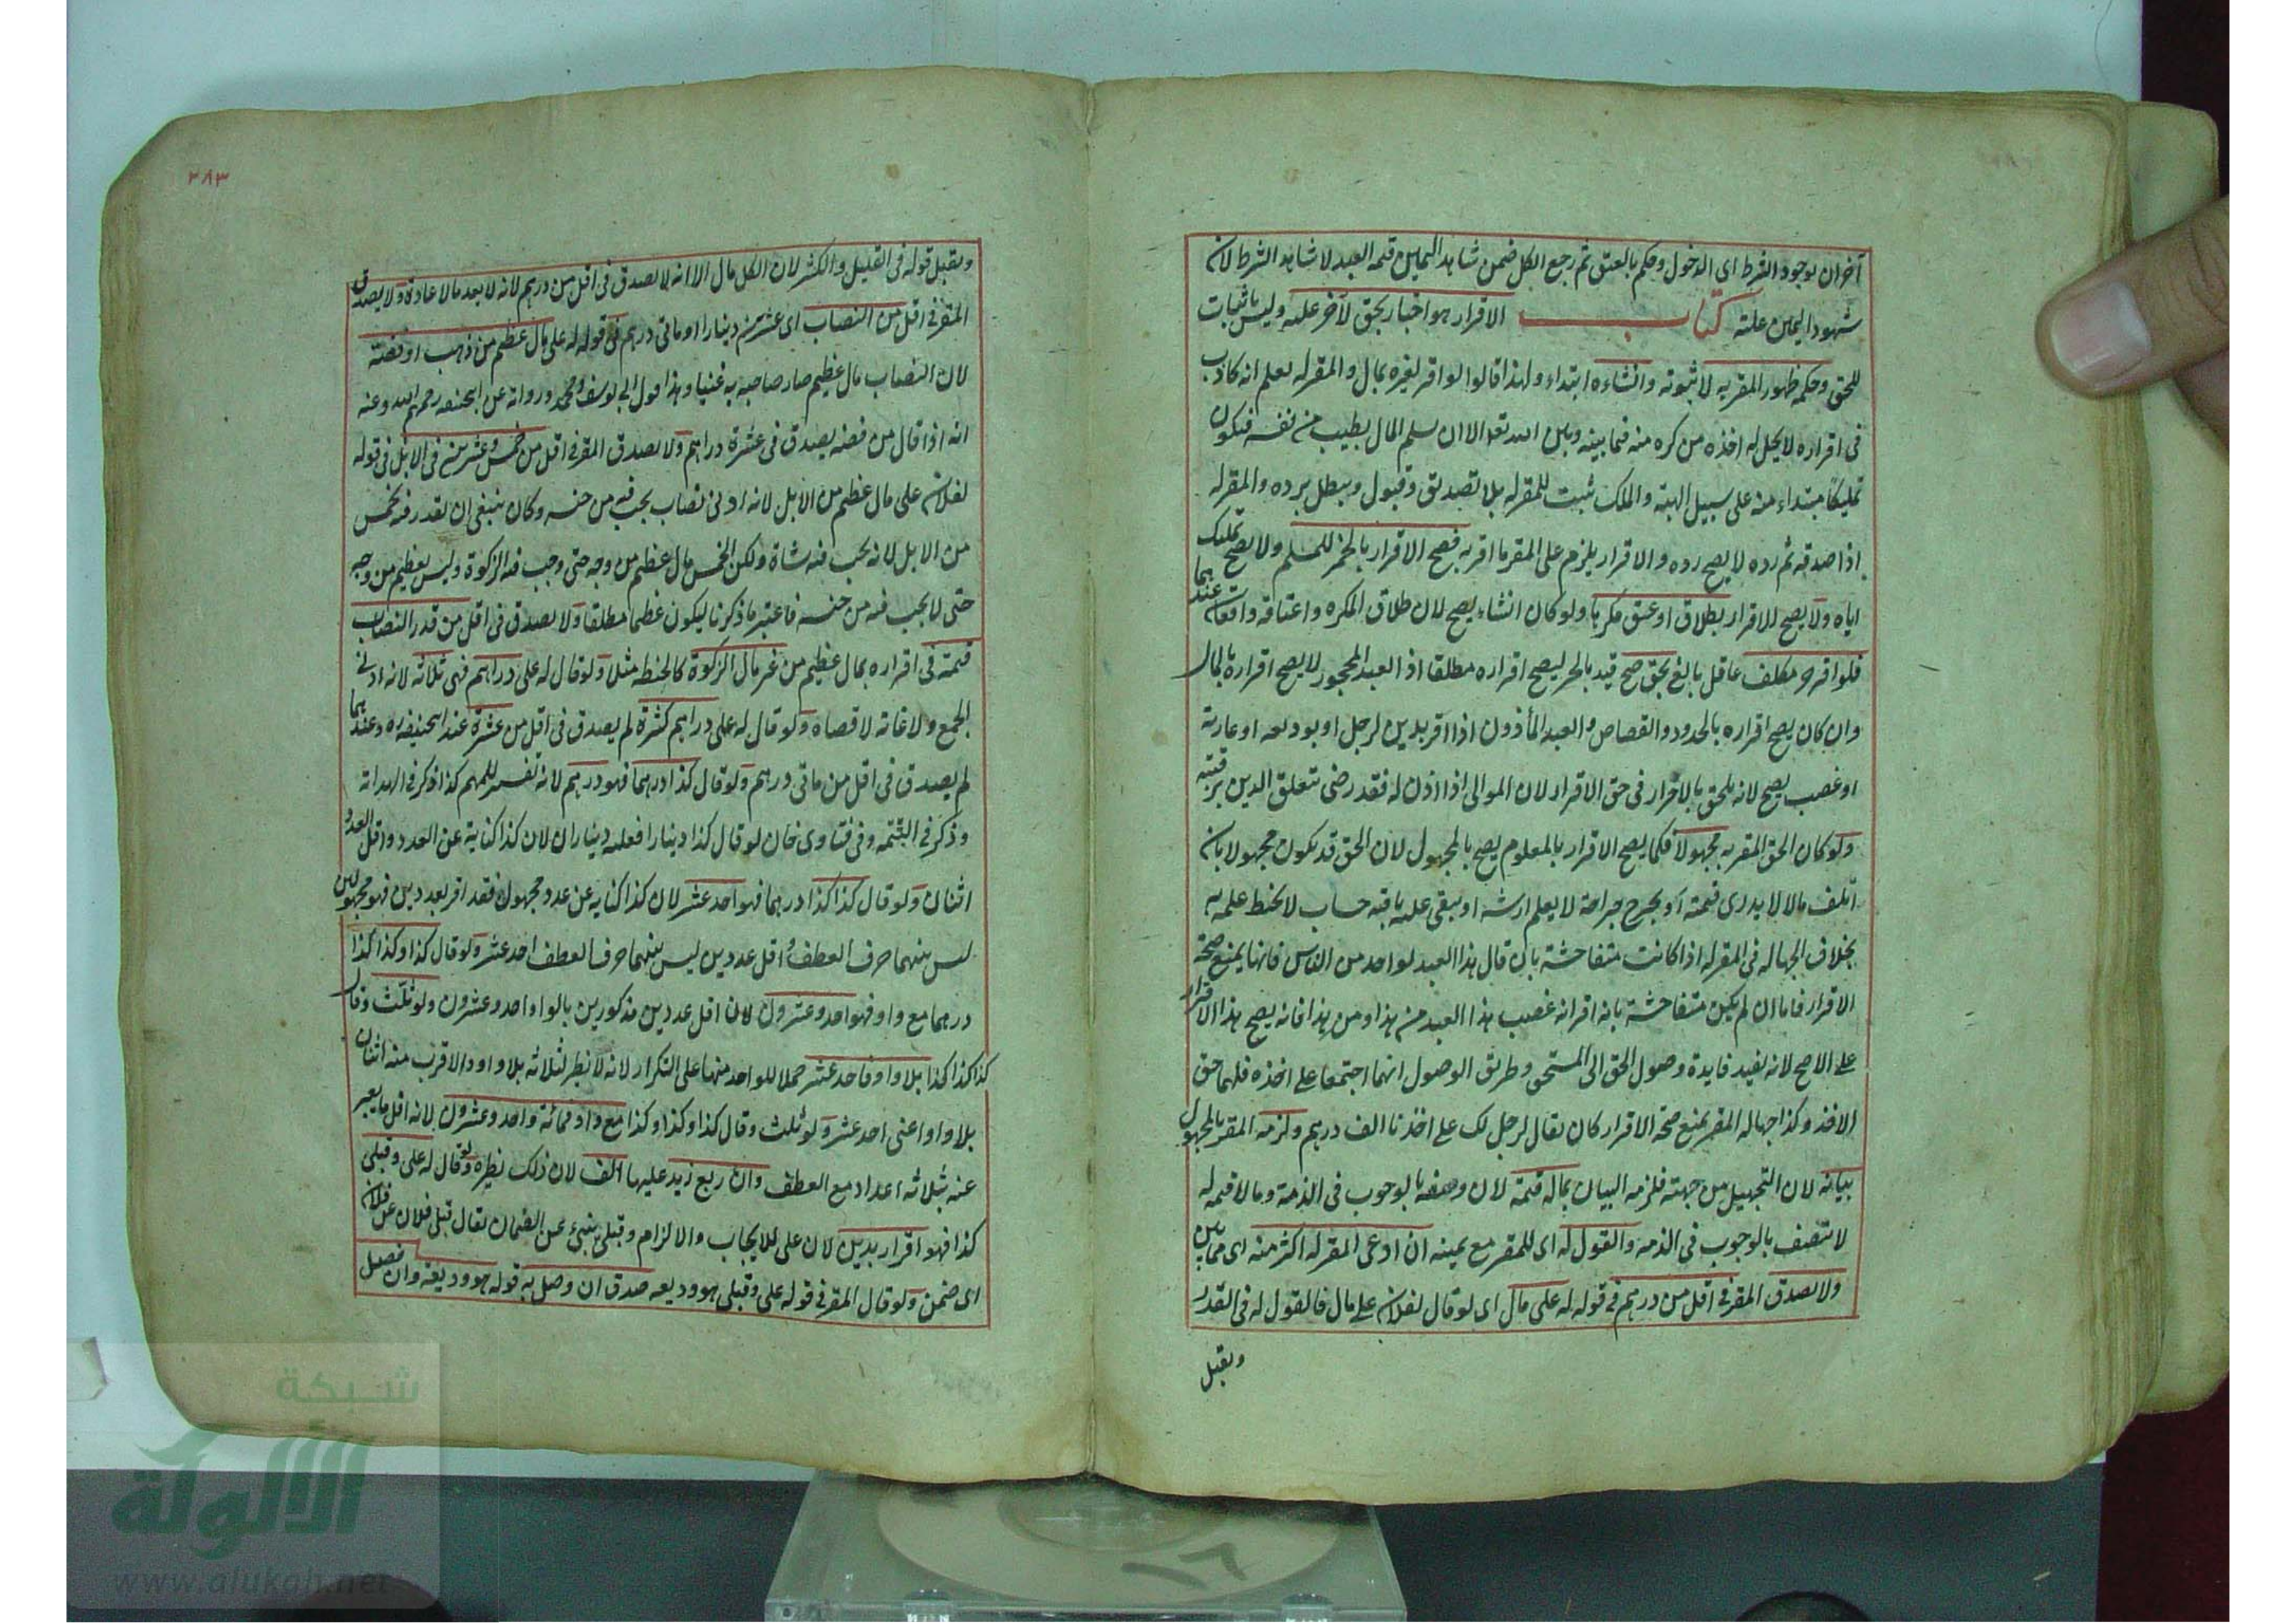 آخران بوجود الشرط اى الدخول وحكم بالعتق ثم رجع الكل ضمن شاهد اليمين قيمة العبد لا شاهد الشرط لان
شهود اليمين علته كتاب الاقرار هو اخبار بحق لآخر عليه وليس باثبات
للحق وحكمه ظهور المقر به لا ثبوته وانشاءه ابتداء ولهذا قالوا لو اقر لغيره بمال والمقر له يعلم انه كاذب
فى اقراره لا يحل له اخذه من كره منه فيما بينه وبين الله تعالى الا ان سلم المال بطيب من نفسه فيكون
تمليكا مبتداء منه على سبيل الهبة والملك يثبت للمقر له بلا تصديق وقبول ويبطل برده والمقر له
اذا صدقه ثم رده لا يصح رده والاقرار يلزم على المقر ما اقر به فصح الاقرار بالخمر للمسلم ولا يصح تمليك
اياه ولا يصح الاقرار بطلاق او عتق مكرها ولو كان انشاء يصح لان طلاق المكره واعتاقه واقعان عندهما
فلو اقر حر مكلف عاقل بالغ بحق صح قيد بالحر ليصح اقراره مطلقا اذ العبد المحجور لا يصح اقراره بالمال
وان كان يصح اقراره بالحدود والقصاص والعبد المأذون اذا اقر بدين لرجل او بوديعه او عارية
او غصب يصح لانه ملحق بالاحرار فى حق الاقرار لان الموالى اذا اذن له فقد رضى بتعلق الدين برقبته
ولو كان الحق المقر به مجهولا فكما يصح الاقرار بالمعلوم يصح بالمجهول لان الحق قد يكون مجهولا بان
اتلف مالا لا يدرى قيمته أو يجرح جراحة لا يعلم ارشه او يبقى عليه باقيه حساب لا يحيط علمه به
بخلاف الجهاله فى المقر له اذا كانت متفاحشة بان قال هذا العبد لواحد من الناس فانها يمنع صحة
الاقرار فاما ان لم يكن متفاحشة بانه اقر انه غصب هذا العبد من هذا ومن هذا فانه يصح هذا الاقرار
على الاصح لانه يفيد فايدة وصول الحق الى المستحق وطريق الوصول انهما اجتمعا على اخذه فلهما حق
الاخذ وكذا جهاله المقر يمنع صحة الاقرار كان يقال لرجل لك على احدنا الف درهم ولزمه المقر بالمجهول
بيانه لان التجهيل من جهته فلزمه البيان بماله قيمة لان وصفه بالوجوب فى الذمة وما لا قيمة له
لا يتصف بالوجوب فى الذمه والقول له اى للمقر مع يمينه ان ادعى المقر له اكثر منه اى مما بين
ولا يصدق المقر فى اقل من درهم فى قوله له على مال اى لو قال لفلان على مال فالقول له فى القدر
ويقبل
٢٨٣
ويقبل قوله فى القليل والكثير لان الكل مال الا انه لا يصدق فى اقل من درهم لانه لا يعد مالا عادة ولا يصدق
المقر فى اقل من النصاب اى عشرين دينارا او مأتى درهم فى قوله له على مال عظيم من ذهب او فضة
لان النصاب مال عظيم صار صاحبه به غنيا وهذا قول ابى يوسف ومحمد وروايه عن ابيحنيفه رحمهم الله وعنه
انه اذا قال من فضه يصدق فى عشرة دراهم ولا يصدق المقر فى اقل من خمس وعشرين فى الابل فى قوله
لفلان على مال عظيم من الابل لانه ادنى نصاب يجب فيه من جنسه وكان ينبغى ان يقدر فيه بخمس
من الابل لانه يجب فيه شاة ولكن الخمس مال عظيم من وجه حتى وجب فيه الزكوة وليس بعظيم من وجه
حتى لا يجب فيه من جنسه فاعتبر ما ذكرنا ليكون عظيما مطلقا ولا يصدق فى اقل من قدر النصاب
قيمة فى اقراره بمال عظيم من غير مال الزكوة كالحنطه مثلا ولو قال له على دراهم فهى ثلاثه لانه ادنى
الجمع ولا غاية لاقصاه ولو قال له على دراهم كثيرة لم يصدق فى اقل من عشرة عند ابيحنيفه ره وعندهما
لم يصدق فى اقل من مأتى درهم ولو قال كذا درهما فهو درهم لانه تفسير للمبهم كذا ذكر فى الهدايه
وذكر فى اليتيمه وفى فتاوى خان لو قال كذا دينارا فعليه ديناران لان كذا كناية عن العدد واقل العدد
اثنان ولو قال كذا كذا درهما فهو احد عشر لان كذا كنايه عن عدد مجهول فقد اقر بعددين فهو مجهولين
ليس بينهما حرف العطف واقل عددين ليس بينهما حرف العطف احد عشر ولو قال كذا وكذا كذا
درهما مع واو فهو احد وعشرون لان اقل عددين مذكورين بالواو احد وعشرون ولو ثلث وقال
كذا كذا كذا بلا واو فاحد عشر حملا للواحد منها على التكرار لانه لا نظير لثلاثه بلا واو والاقرب منه اثنان
بلا واو اعنى احد عشر ولو ثلث وقال كذا وكذا وكذا مع واو فمائة واحد وعشرون لانه اقل ما يعبر
عنه بثلاثه اعداد مع العطف وان ربع زيد عليها الف لان ذلك نظيره ولو قال له على وقبلى
كذا فهو اقرار بدين لان على للايجاب والالزام وقبلى ينبئ عن الضمان يقال قبل فلان عن فلان
اى ضمن ولو قال المقر فى قوله على وقبلى هو وديعه صدق ان وصل به قوله هو وديعة وان فصل
شبكة
الألوكة
www.alukah.net